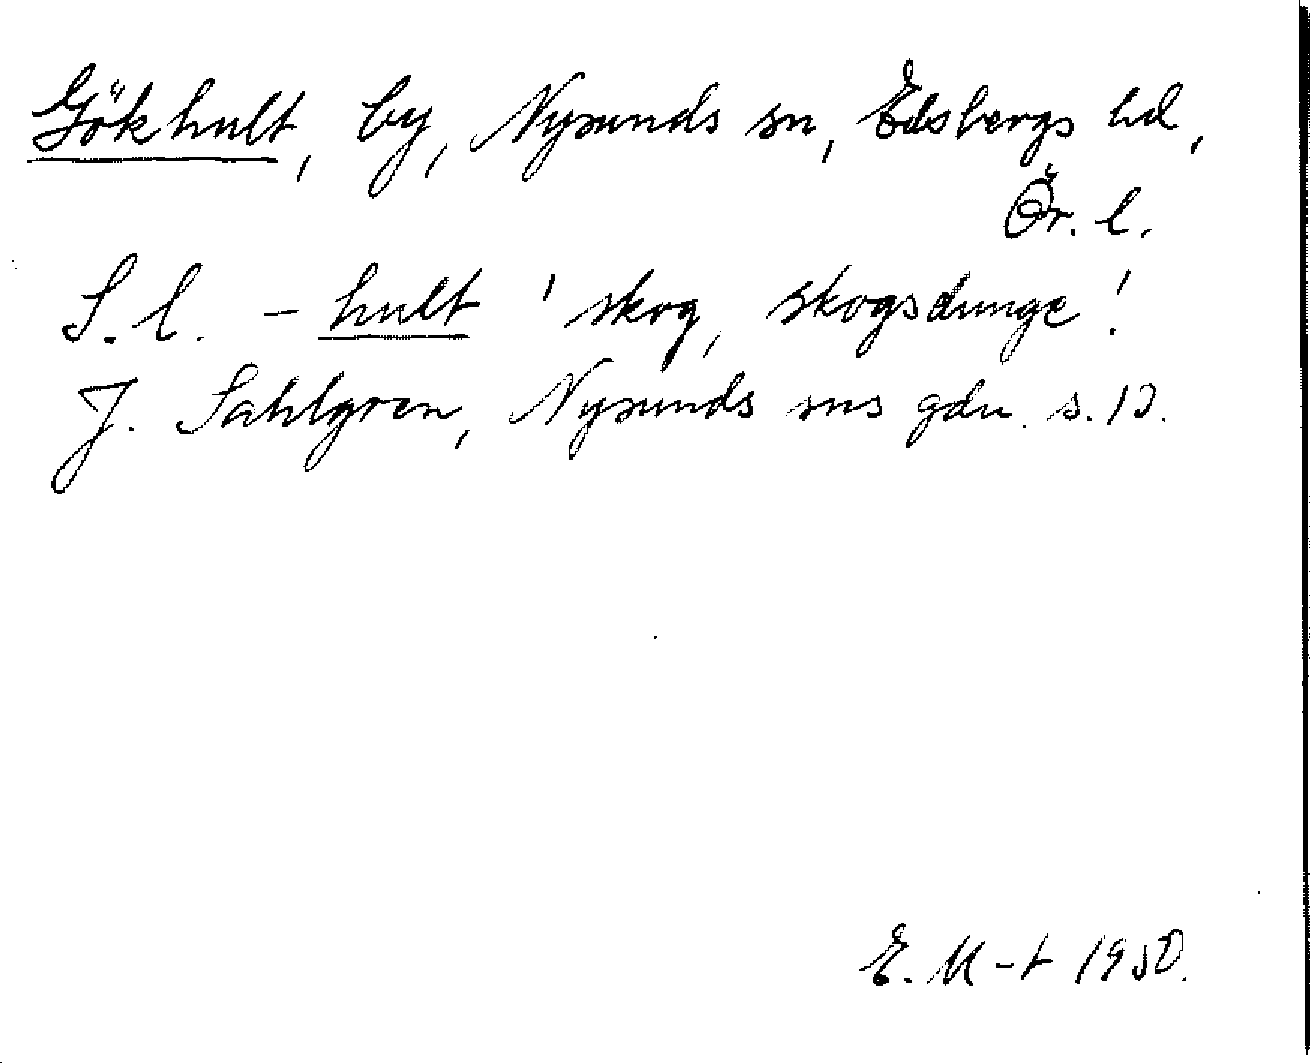 Gökhult, by, Nysunds sn, Edsbergs hd,
Ör. l.
S. l. - hult 'skog, skogsdunge'.
J. Sahlgren, Nysunds sns gdn. s. 10.
E. M-t 1950.